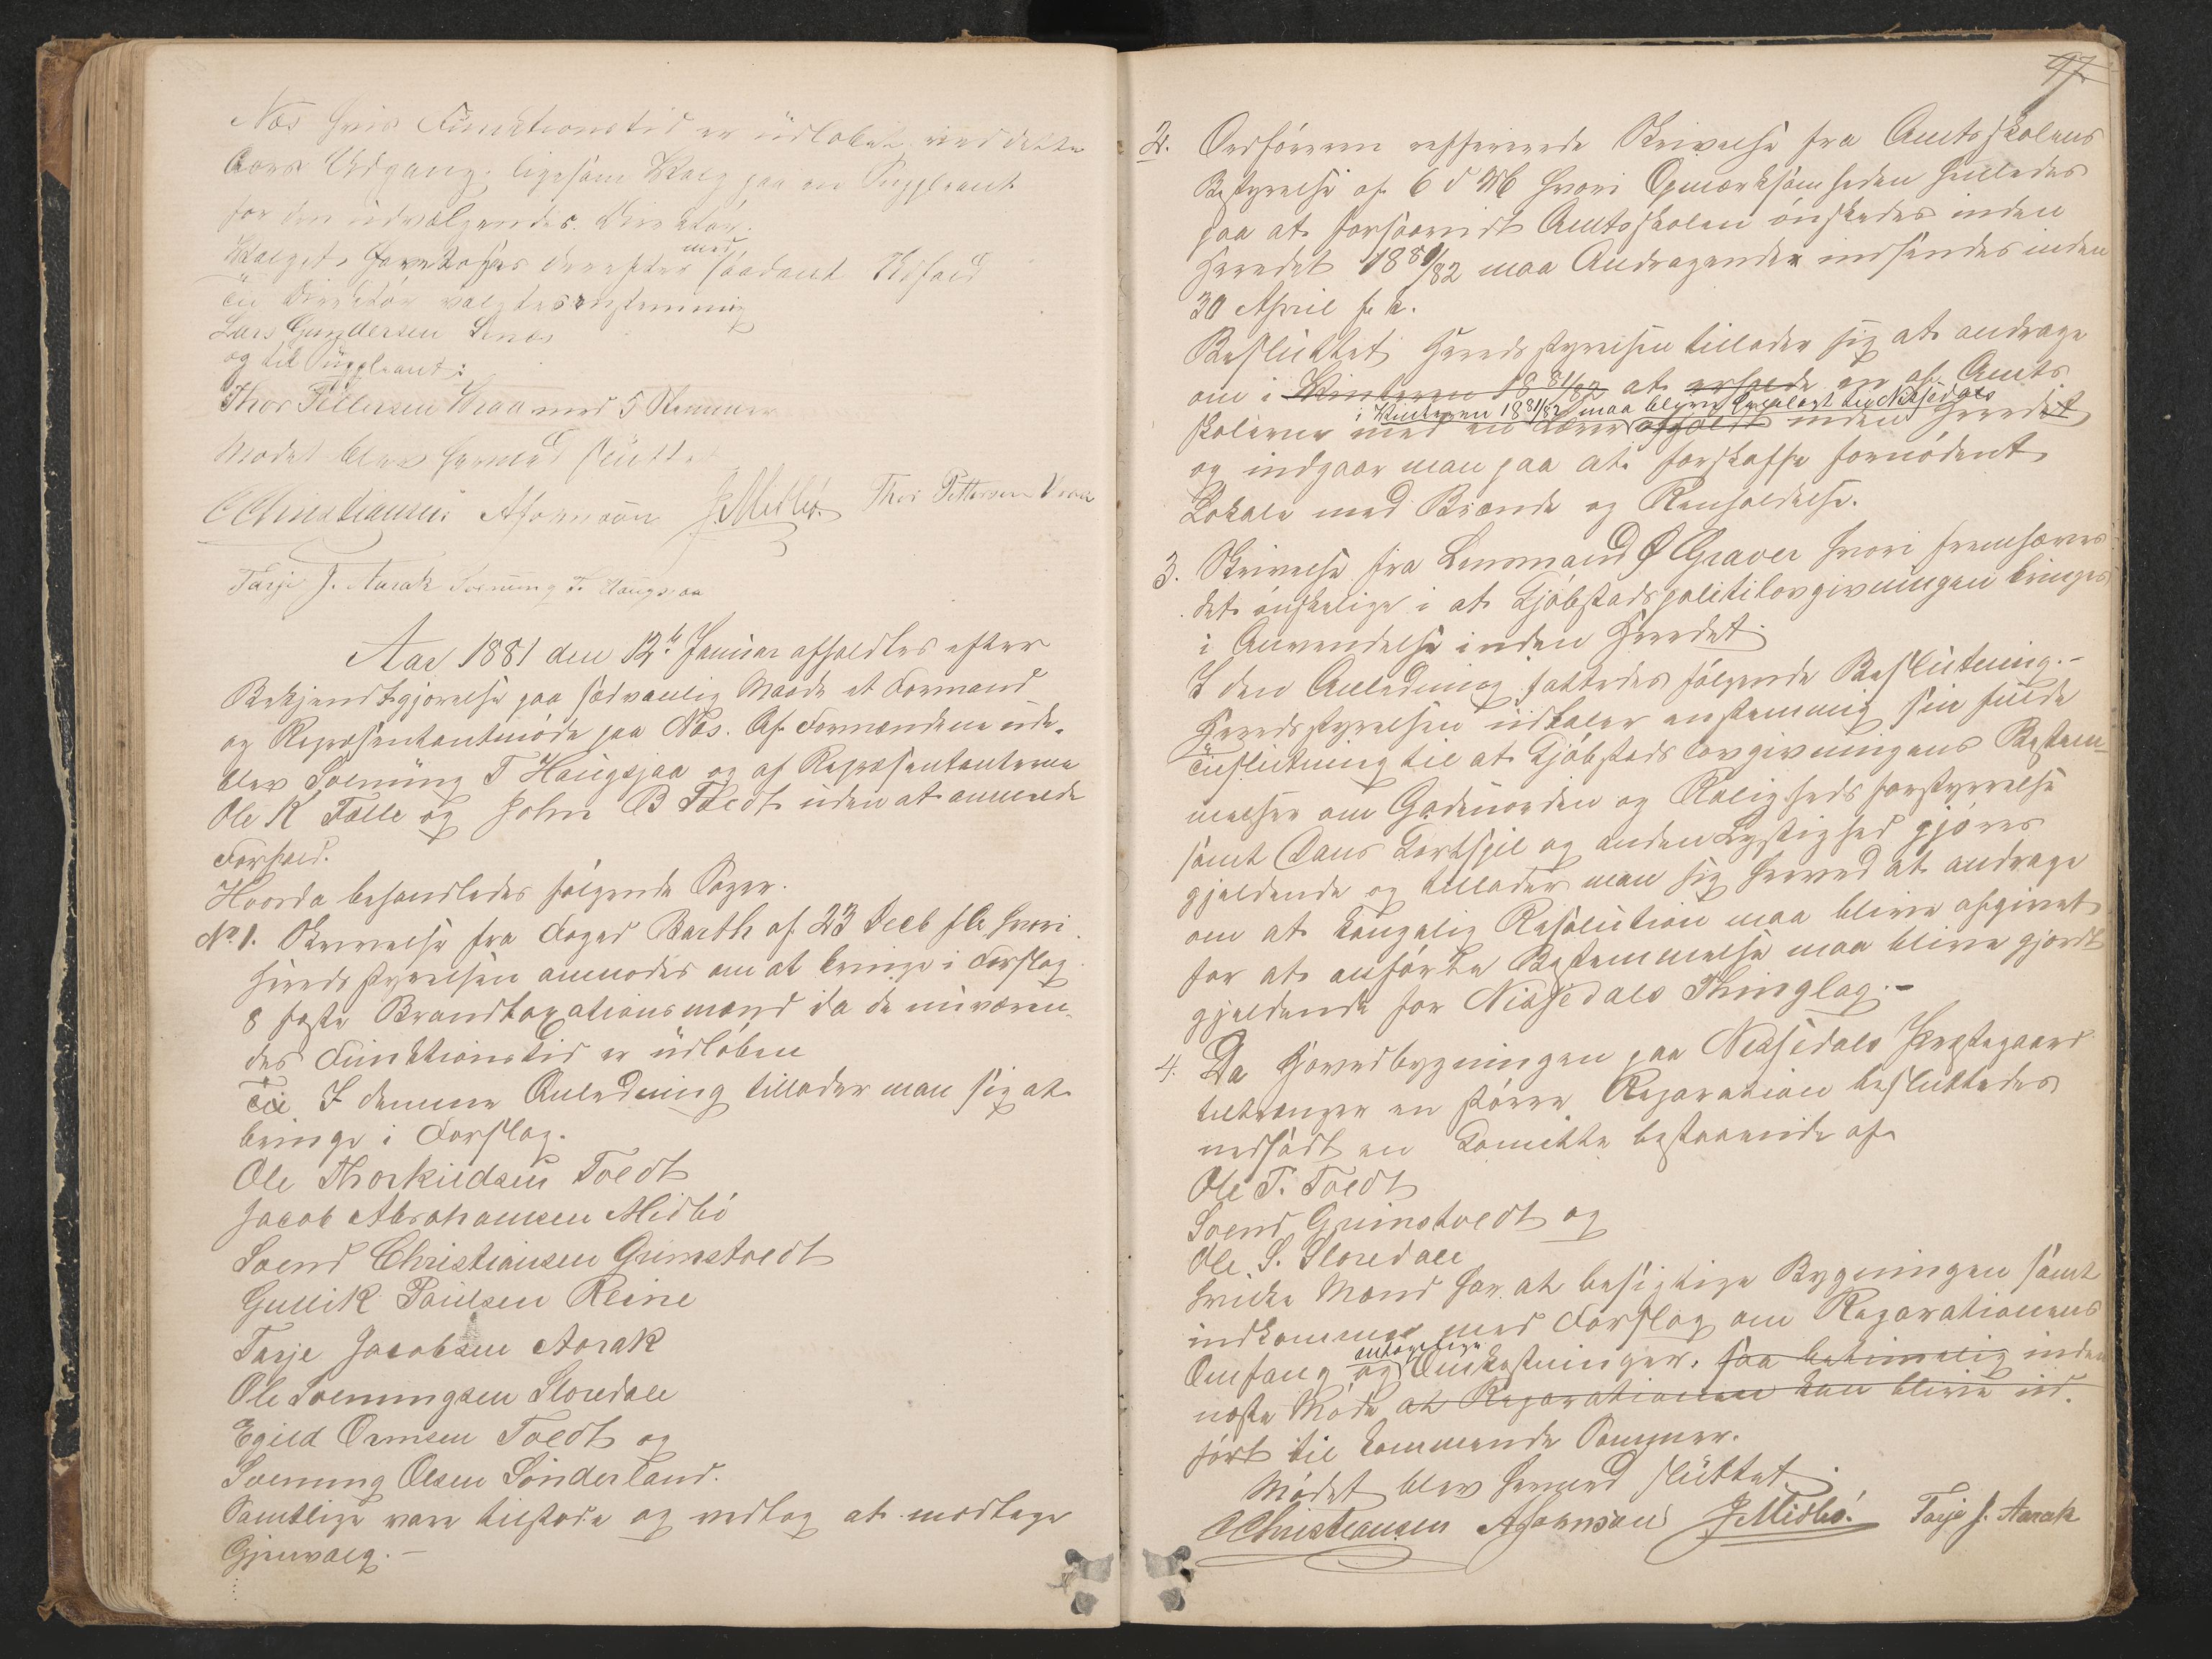 Næs hvis Funktionstid er udløbet ved dette
Aars Udgang. ligesom Valg paa en Suppleant
for den udvælgendes Direktør.
Valget foretoges derefter med saadant Udfald
Til Direktør valgtes enstemmig
Lars Gundersen
og til Suppleant:
Thor Pettersen Vraa med 5 Stemmer
Mødet blev hermed sluttet
CChristiansen AJohnsøn JMidbö. Thor Pettersen Vraa
Tarje J. Aarak Svenung T. Haugsjaa
Aar 1881 den 12te Januar afholdtes efter
Bekjendtgjørelse paa sædvanlig Maade et Formand
og Repræsentantmöde paa Næs. Af Formændene ude-
blev Svenung T Haugsjaa og af Repræsentanterne
Ole K Falle og John B Tvedt uden at anmelde
Forfald.
Hvorda behandledes følgende Sager.
No 1. Skrivelse fra Foged Barth af 23 Decb f A hvori
Heredsstyrelsen anmodes om at bringe i Forslag
8 faste Brandtaxationsmænd da de nuværen-
des Funktionstid er udløben
Til I denne Anledning tillader man sig at
bringe i Forslag.
Ole Thorkildsen Tvedt
Jacob Abrahamsen Midbö
Svend Christiansen Grimstvedt
Gullik Poulsen Reine
Tarje Jacobsen Aarak
Ole Svenungsen Storedale
Egild Ormsen Tvedt og
Svenung Olsen Sønderland.
Samtlige vare tilstede og vedtog at modtage
Gjenvalg.-
97
2. Ordføreren refererede Skrivelse fra Amtsskolens
Bestyrelse af 6 d M hvori Opmærksomheden henledes
paa at forsaavidt Amtsskolen ønskedes inden
Heredet 1881/82 maa Andragender indsendes inden
30 April f. k.
Besluttet Heredsstyrelsen tillader sig at andrage
om i Vinteren 1881/82 at erholde en af Amts
i Vinteren 1881/82 maa blive henlagt til Nissedals
skolerne med en Lærer afholdt inden Heredet
og indgaar man paa at forskaffe fornødent
Lokale med Brænde og Renholdelse.
3. Skrivelse fra Lensmand O Graver hvori fremhæves
det ønskelige i at Kjøbstadspolitilovgivningen bringes
i Anvendelse inden Heredet.
I den Anledning fattedes følgende Beslutning.-
Heredsstyrelsen udtaler enstemmig sin fulde
Tilslutning til at Kjøbstadslovgivningens Bestem-
melser om Gadeuorden og Roligheds forstyrrelse
samt Dans Kortspil og anden Lystighed gjøres
gjældende og tillader man sig herved at andrage
om at kongelig Resolution maa blive afgivet
for at anførte Bestemmelse maa blive gjordt
gjældende for Nissedals Thinglag.-
4. Da Hovedbygningen paa Nissedals Præstegaard
tiltrænger en større Reparation besluttedes
nedsadt en Komitte bestaaende af
Ole T. Tvedt
Svend Grimstvedt og
Ole S. Storedale
hvilke Mænd har at besigtige Bygningen samt
indkomme med Forslag om Reparationens
Omfang og antagelige Omkostninger. saa betimelig inden
næste Møde at Reparationen kan blive ud-
ført til kommende Sommer.
Mødet blev hermed sluttet.
CChristiansen AJohnson JMidbö. Tarje J. Aarak